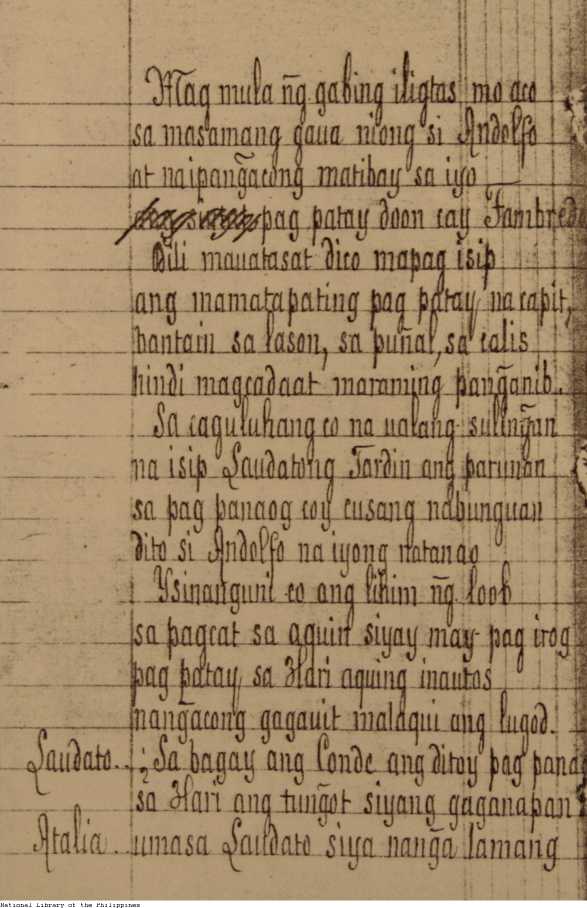 Mag mula ñg gabing iligtas mo aco
sa masamang gaua niong si Andolfo
at naipang̃acong matibay sa iyo
pag patay doon cay Fambred
Dili mauatasat dico mapag isip
ang mamatapating pag patay na capit,
bantain sa lason, sa puñal, sa calis
hindi magcadaat maraming pang̃anib.
Sa caguluhang co na ualang suling̃an
na isip Laudatong Jardin ang parunan
sa pag panaog coy cusang nabunguan
dito si Andolfo na iyong natanao
Ysinangunì co ang lihim ñg loob
sa pagcat sa aquin siyay may pag irog
pag patay sa Hari aquing inautos
nang̃acong gagauit malaqui ang lugod.
Laudato.. ¿Sa bagay ang Conde ang ditoy pag pana
sa Hari ang tung̃ot siyang gaganapan
Atalia.. umasa Laudato siya nang̃a lamang
National Library of the Philippines